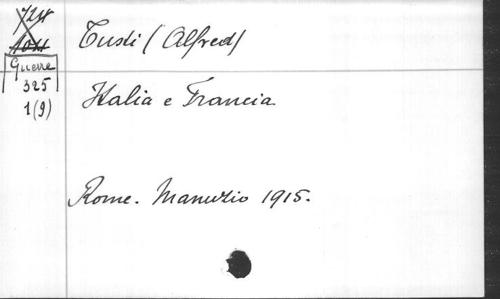 724
Guerre
325
1(9)
Tusti (Alfred)
Italia e Francia.
Rome. Manuzio 1915.